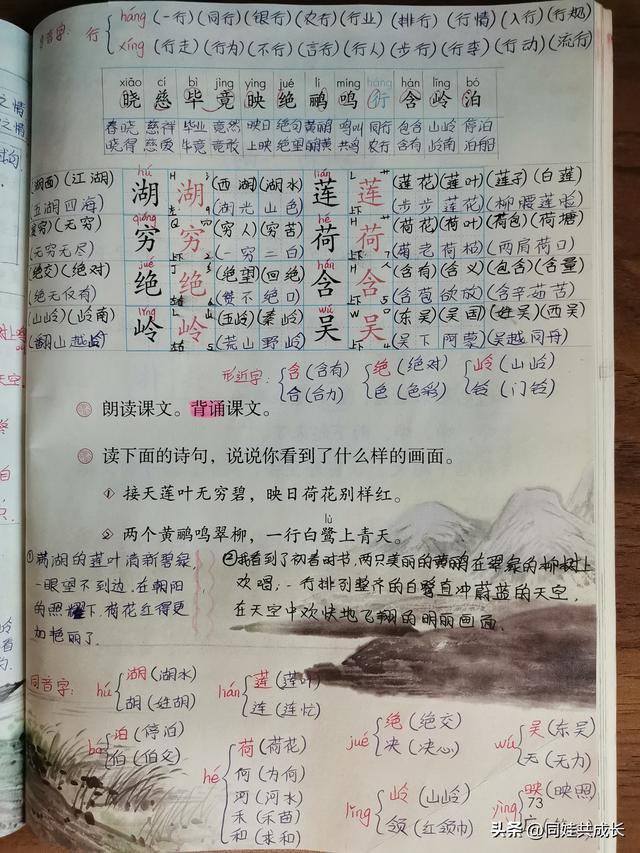 音字: 行 háng (一行)(同行)(银行)(农行)(行业)(排行)(行情)(入行)(行规)
xíng (行走)(行为)(不行)(言行)(行人)(步行)(行李)(行动)(流行)
xiǎo cí bì jìng yìng jué lí míng háng hán lǐng bó
晓 慈 毕 竟 映 绝 鹂 鸣 行 含 岭 泊
春晓 慈祥 毕业 竟然 映日 绝句 黄鹂 鸣叫 同行 包含 山岭 停泊
晓得 慈爱 毕竟 竟敢 上映 绝望 鹂黄 共鸣 农行 含有 岭南 泊船
(湖面)(江湖) hú 湖 湖 (西湖)(湖水) lián 莲 莲 (莲花)(莲叶)(莲子)(白莲)
五湖四海 (湖光山色) (步步莲花)
(无穷) qióng 穷 穷 (穷人)(穷苦) hé 荷 荷 (荷花)(荷叶)(荷包)(荷塘)
(无穷无尽) (一穷二白) (两肩荷口)
(绝交)(绝对) jué 绝 绝 (绝望)(回绝) hán 含 含 (含有)(含义)(包含)(含量)
(绝无仅有) (赞不绝口) (含苞欲放)(含辛茹苦)
(山岭)(岭南) lǐng 岭 岭 (五岭)(秦岭) wú 吴 吴 (东吴)(吴国)(姓吴)(西吴)
(翻山越岭) (荒山野岭) (吴下阿蒙)(吴越同舟)
形近字: 含(含有) 绝(绝对) 岭(山岭)
合(合力) 色(色彩) 铃(门铃)
朗读课文。背诵课文。
读下面的诗句，说说你看到了什么样的画面。
① 接天莲叶无穷碧，映日荷花别样红。
lù
② 两个黄鹂鸣翠柳，一行白鹭上青天。
①满湖的莲叶清新碧绿,
一眼望不到边.在朝阳
的照耀下.荷花红得更
加艳丽了.
②我看到了初春时节,两只美丽的黄鹂在翠绿的柳树上
欢唱;一行排列整齐的白鹭直冲蔚蓝的天空,
在天空中欢快地飞翔的明丽画面.
同音字: hú 湖(湖水) 莲(莲叶)
胡(姓胡) 连(连忙)
bó 泊(停泊) jué 绝(绝交) wú 吴(东吴)
伯(伯父) 决(决心) 无(无力)
hé 荷(荷花)
何(为何)
河(河水)
禾(禾苗)
和(求和)
lǐng 岭(山岭) yìng 映(映照)
领(红领巾)
73
头条 @同娃共成长